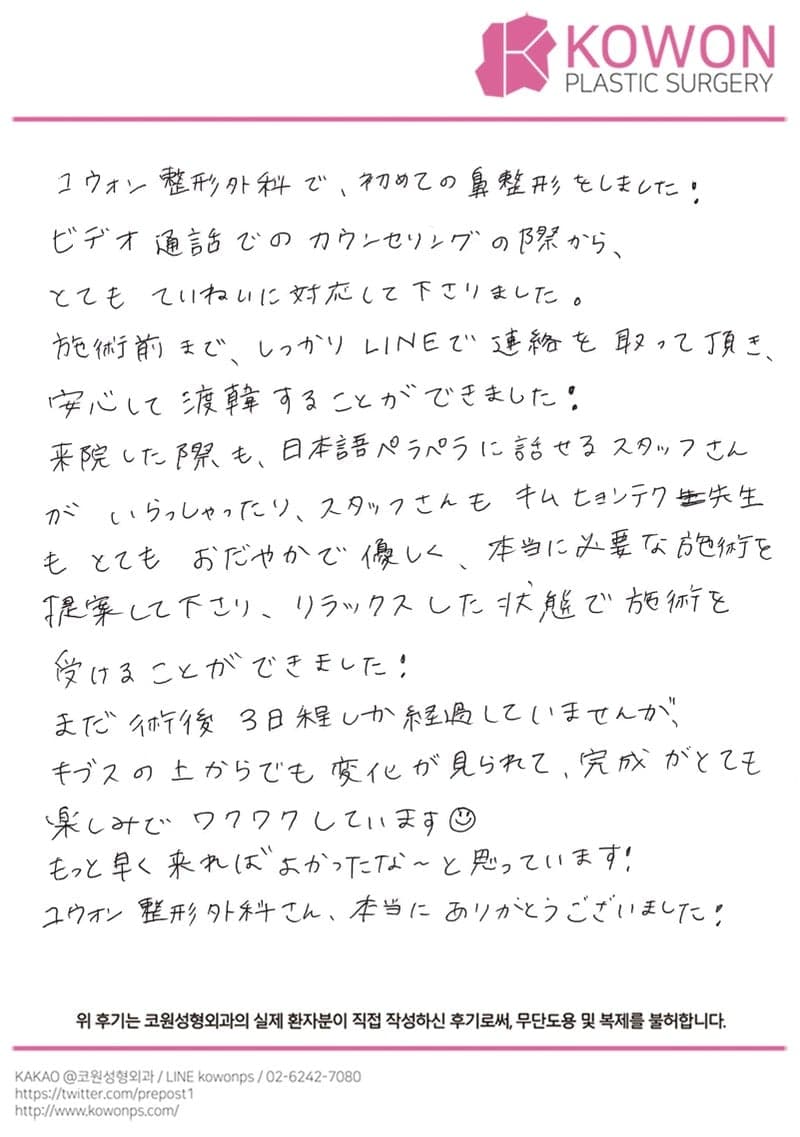 KOWON
PLASTIC SURGERY
コウォン整形外科で、初めての鼻整形をしました!
ビデオ通話でのカウンセリングの際から、
とても ていねいに対応して下さりました。
施術前まで、しっかりLINEで連絡を取って頂き、
安心して渡韓することができました!
来院した際も、日本語ペラペラに話せるスタッフさん
が いらっしゃったり、スタッフさんも キムヒョンテク先生
も とても おだやかで優しく、本当に必要な施術を
提案して下さり、リラックスした状態で施術を
受けることができました!
まだ術後 3日程しか経過していませんが、
ギプスの上からでも変化が見られて、完成がとても
楽しみで ワクワクしています☺
もっと早く来ればよかったな〜と思っています!
コウォン整形外科さん、本当に ありがとうございました!
위 후기는 코원성형외과의 실제 환자분이 직접 작성하신 후기로써, 무단도용 및 복제를 불허합니다.
KAKAO @코원성형외과 / LINE kowonps / 02-6242-7080
https://twitter.com/prepost1
http://www.kowonps.com/